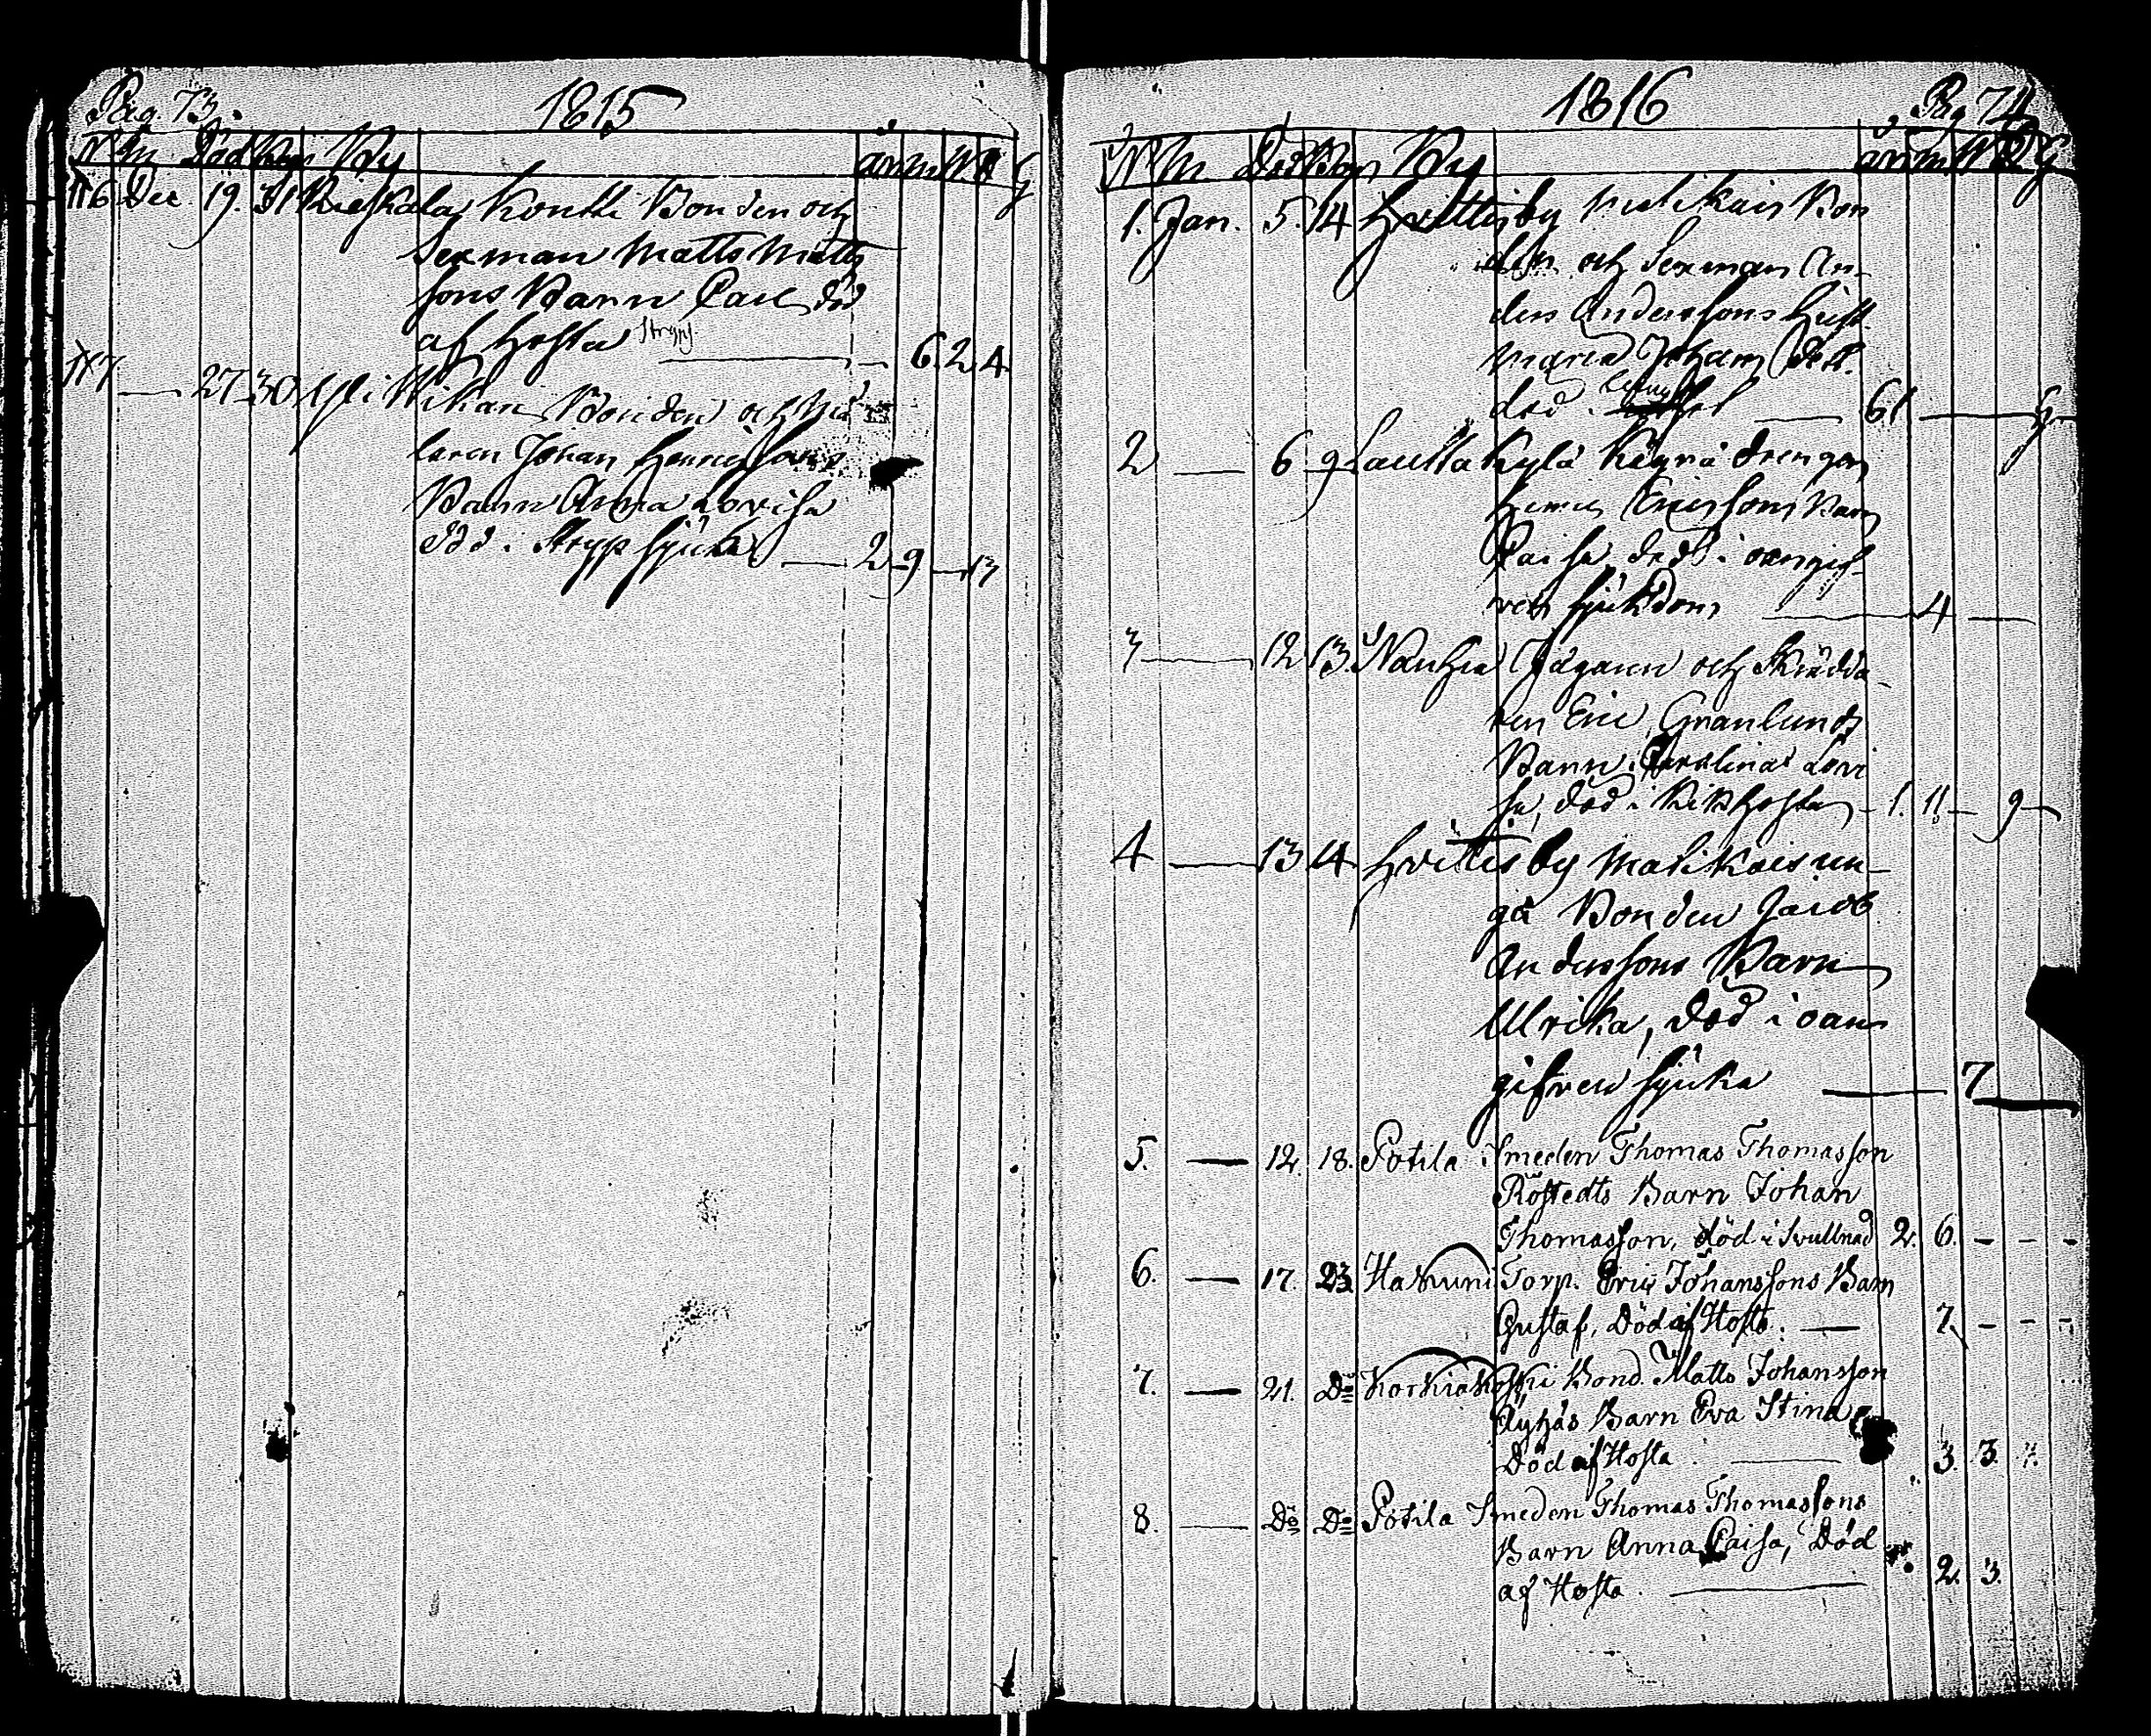 Pag. 73.
1815
N M Död Begr By år m W D G
116 Dec. 19. 31 Kieskala Kontti Bonden och
Sexman Matts Matts
sons Barn Carl död
af hosta stryps. — 6. 2 4
117 — 27 30 Wikari Bonden och Må
laren Johan Henrichsons
Barn Anna Lovisa
död i Strypsjuka — 2 9 — 13
1816
Pag 74
N M Död Begr By år m W D G
1. Jan. 5. 14 Hvittisby Bon
den och Sexman An
ders Anderssons Hust.
Maria Johans Dott.
död i — 61 — G
2 — 6 9 Lauttakylä Käyrä drengen
Henric Ericssons Barn
Caisa, död i oangif
ven sjukdom — 4 —
3 — 12 13. Nanhia Jägaren och Skrädda
ren Eric Granlunds
Barn Carolina Lovi
sa, död i Kikhosta — 1. 11 — 9 —
4 — 13 14 Hvittisby Matikais un
ga Bonden Jacob
Anderssons Barn
Ulrika, död i oan
gifven sjuka — 7
5. — 12. 18. Potila Smeden Thomas Thomasson
Röstedts Barn Johan
Thomasson, död i Svullnad 2. 6. - - -
6. — 17. 23 Hakuni Torp. Eric Johanssons Barn
Gustaf, Död af Hosta. — 7. - - -
7. — 21. Do Korkiakoski Bond. Matts Johansson
Äyhäs Barn Eva Stina
Död af Hosta. — 3. 3.
8. — Do Do Potila Smeden Thomas Thomassons
Barn Anna Caisa, Död
af Hosta. — 2. 3.